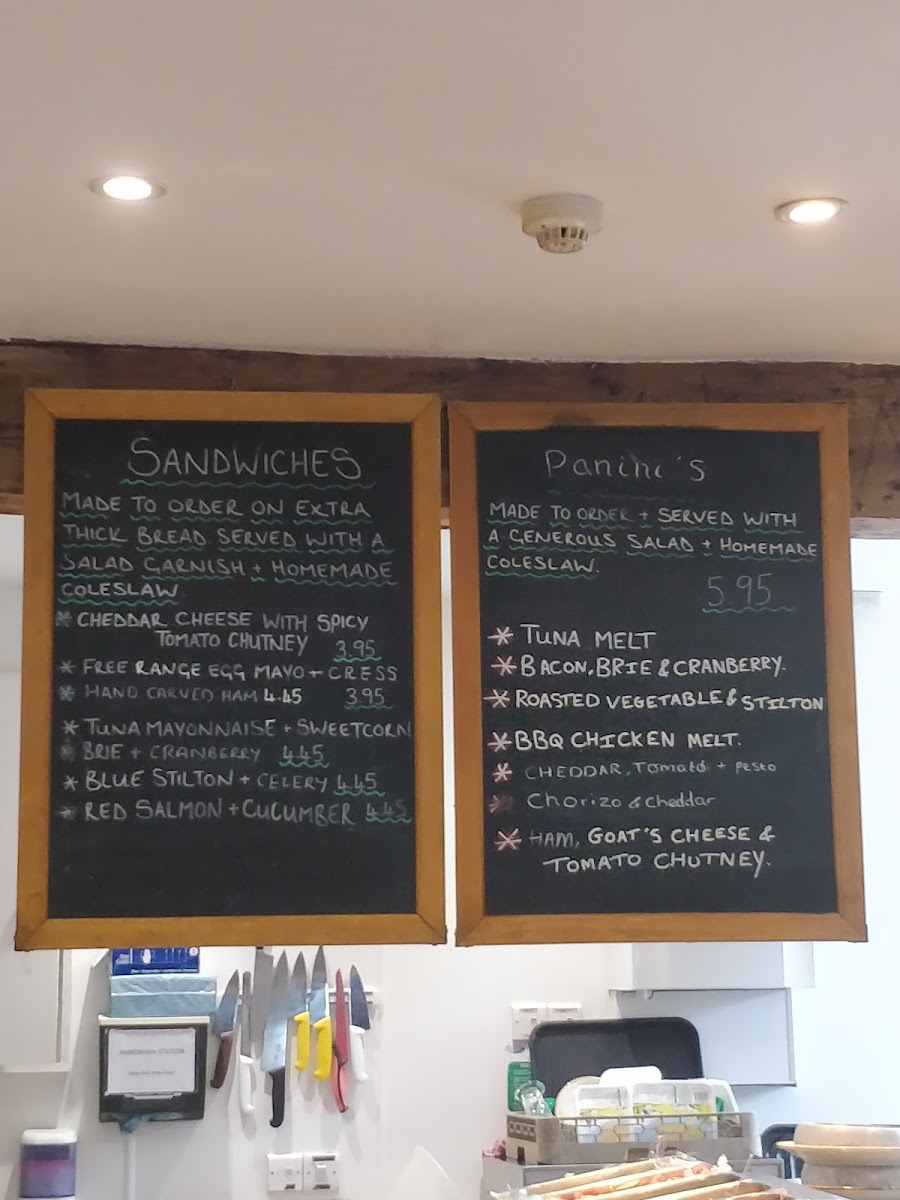 SANDWICHES
MADE TO ORDER ON EXTRA
THICK BREAD SERVED WITH A
SALAD GARNISH + HOMEMADE
COLESLAW.
* CHEDDAR CHEESE WITH SPICY
TOMATO CHUTNEY 3.95
* FREE RANGE EGG MAYO + CRESS
* HAND CARVED HAM 4.45 3.95
* TUNA MAYONNAISE + SWEETCORN
* BRIE + CRANBERRY 4.45
* BLUE STILTON + CELERY 4.45
* RED SALMON + CUCUMBER 4.45
Panini's
MADE TO ORDER + SERVED WITH
A GENEROUS SALAD + HOMEMADE
COLESLAW.
5.95
* TUNA MELT
* BACON, BRIE & CRANBERRY.
* ROASTED VEGETABLE & STILTON
* BBQ CHICKEN MELT.
* CHEDDAR, Tomato + Pesto
* Chorizo & Cheddar
* HAM, GOAT'S CHEESE &
TOMATO CHUTNEY.
HANDWASH STATION